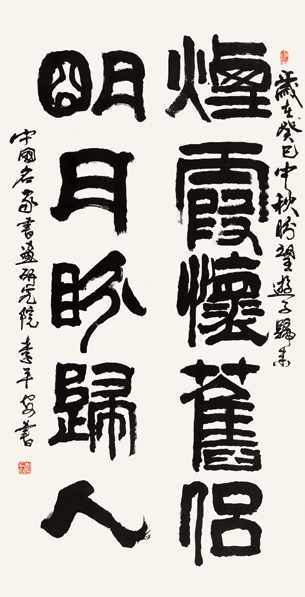 歲在癸巳中秋盼望遊子歸來
煙霞懷舊侶
朙月盼歸人
中國名家書畫研究院李平安書